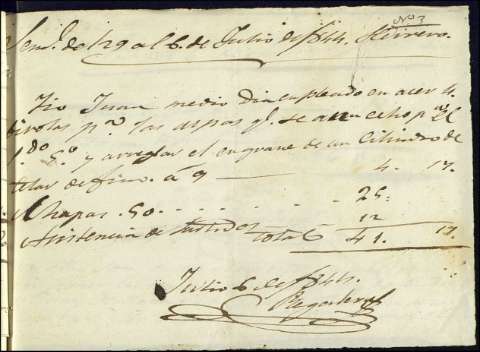 No 7
Sem.l de 1 29 al 6. de Julio de 1844. Herrero.
Tio Juan medio dia empleado en acer 4.
birolas p.a las aspas q.e se an echo p.a el
1.do S.o y arreglar el engrane de un Cilindro de
telar de fino. á 9 4. 17.
Chapas. 50. 25.
Asistencia de tostados 12
total 41. 17.
Julio 6 de 1844.